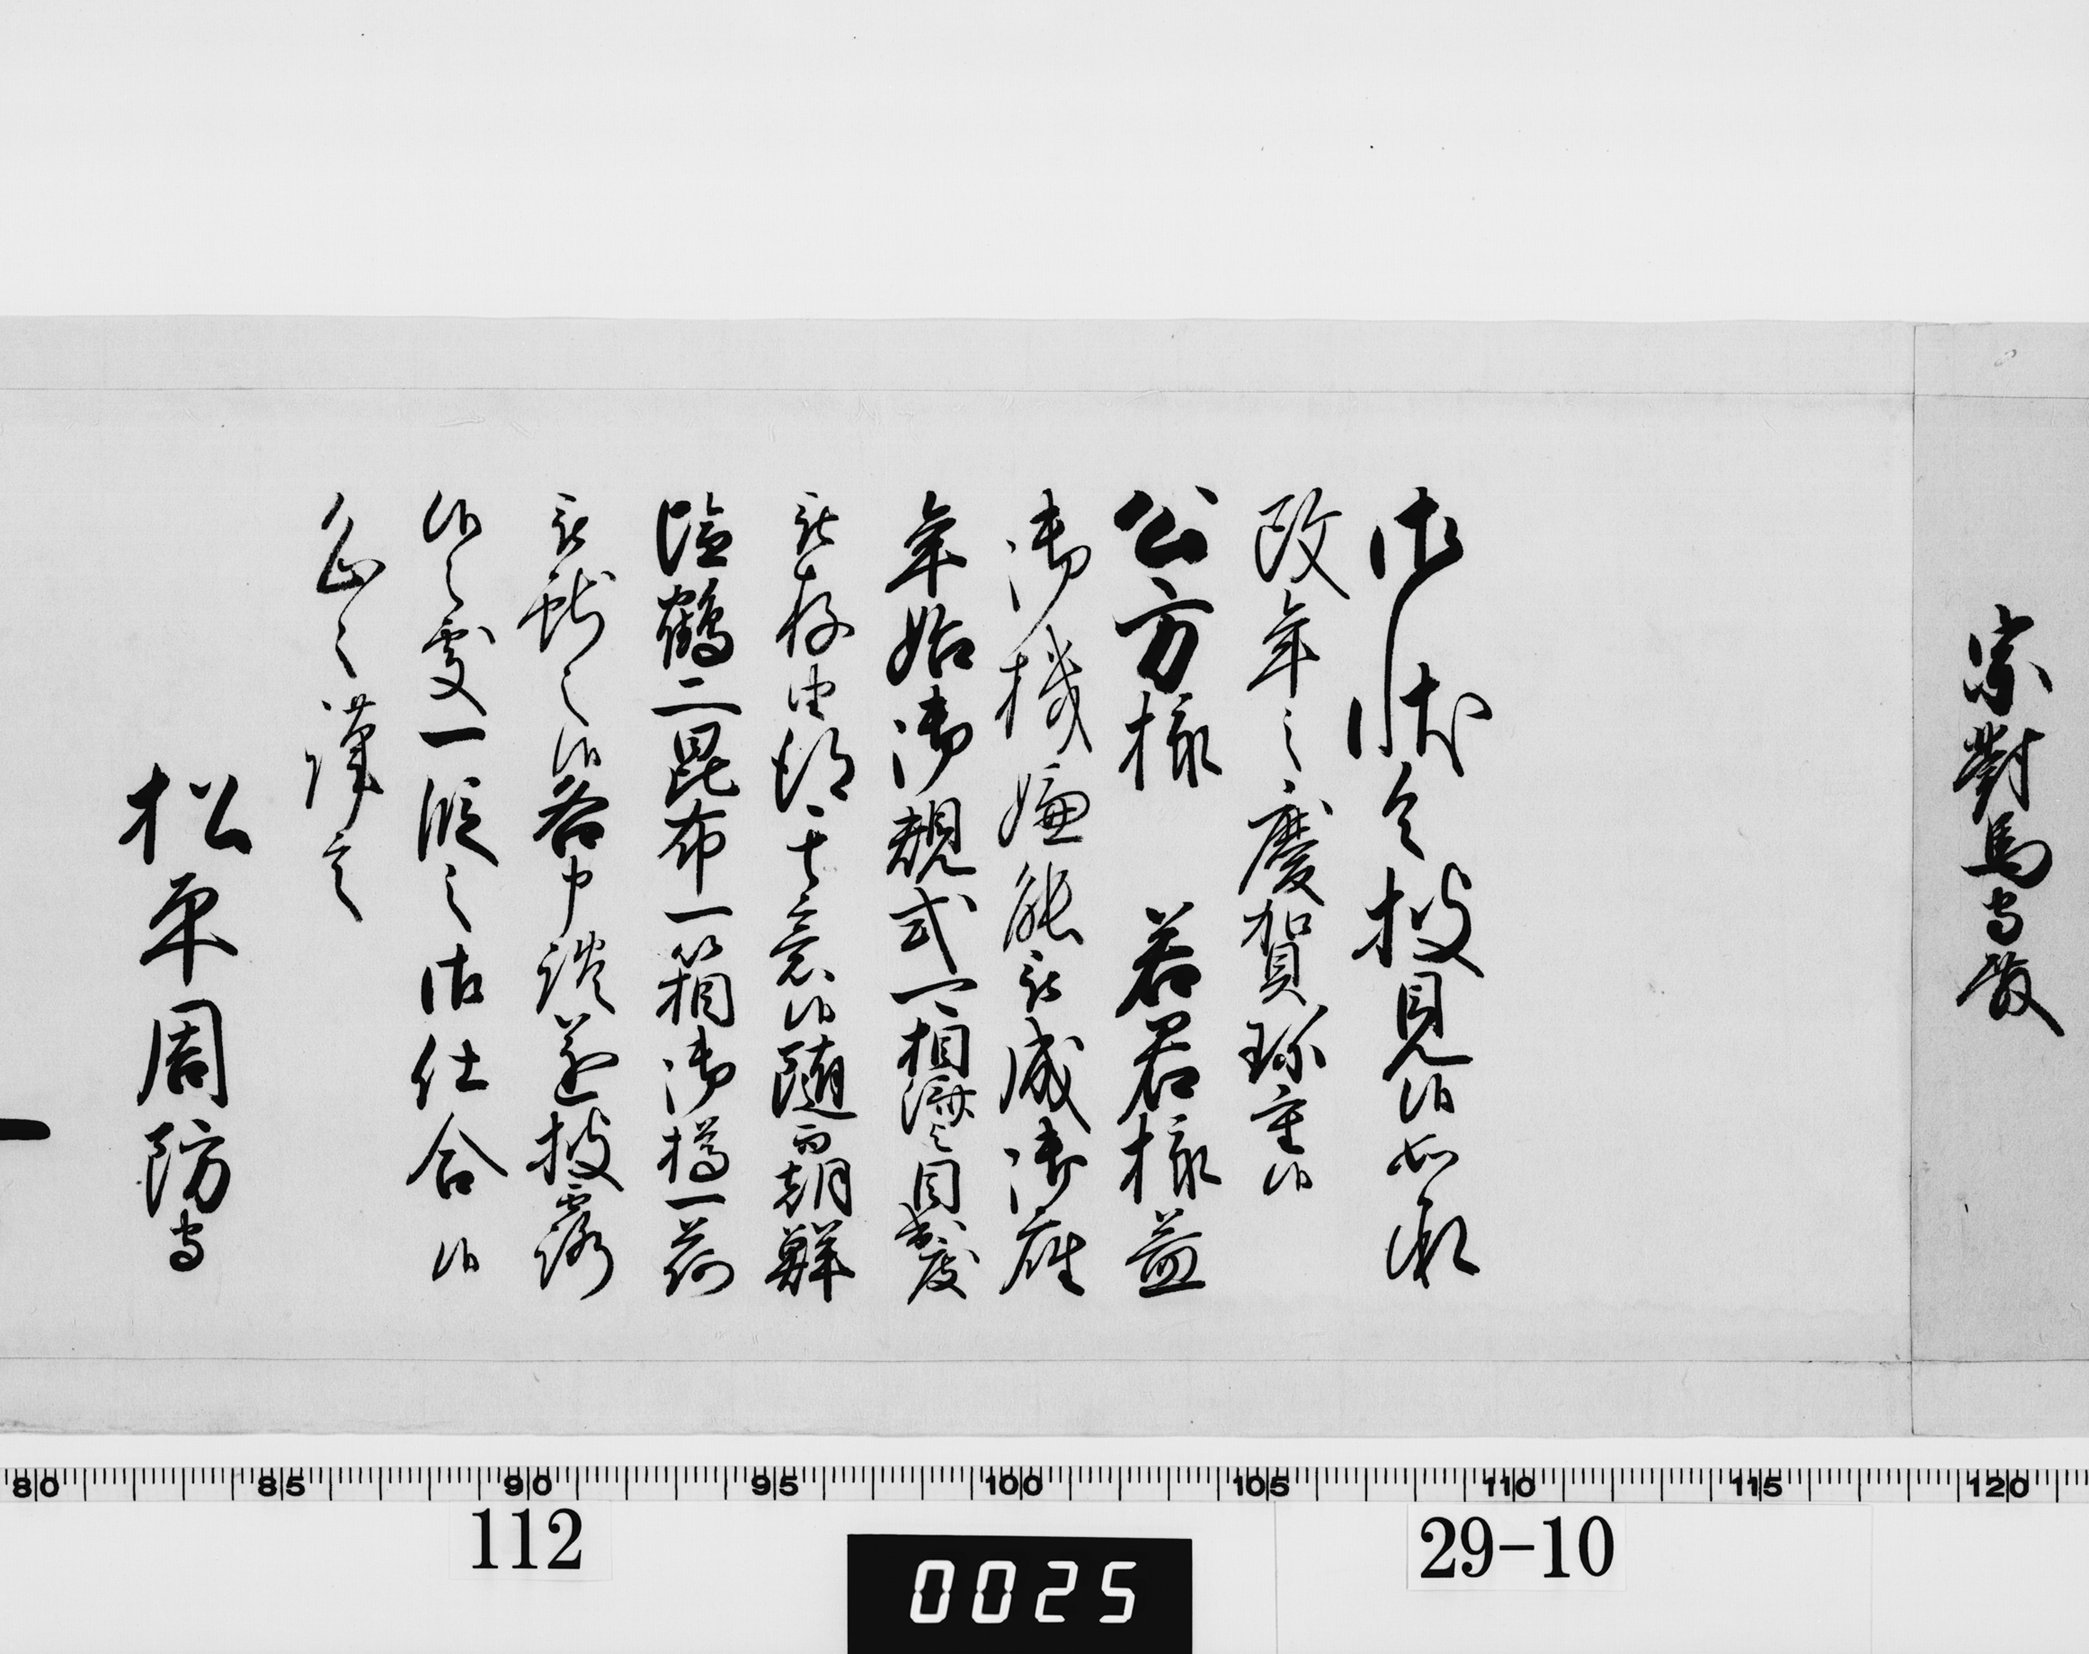 宗對馬守殿
御状令披見候如承
改年之慶賀珍重候
公方様 若君様益
御機嫌能被成御座
年始御規式可相済と目出度
被存由得其意候随而朝鮮
塩鶴二昆布一箱御樽一荷
被献之候各申談遂披露
候之處一段之御仕合候
恐々謹言
松平周防守
80 85 90 95 100 105 110 115 120
112
0025
29-10